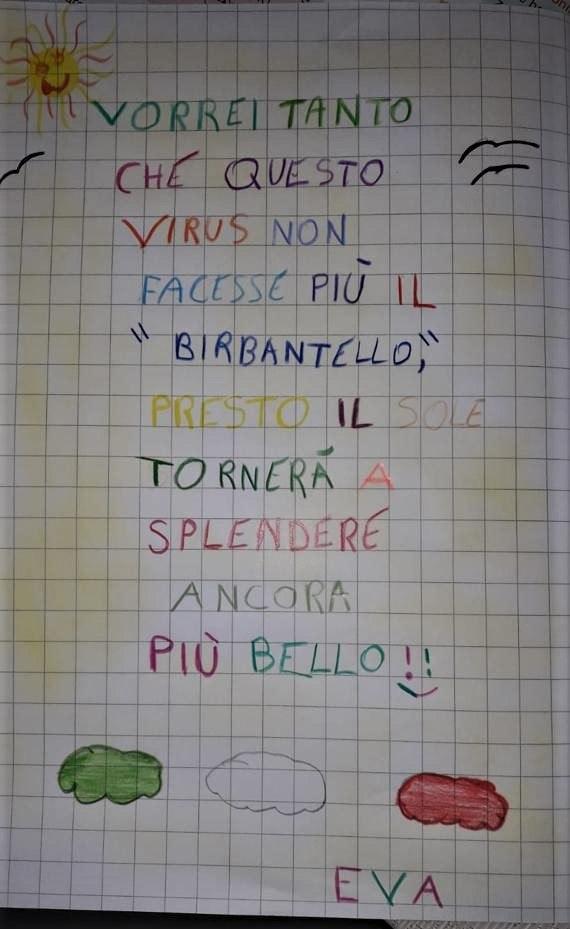 VORREI TANTO
CHE QUESTO
VIRUS NON
FACESSE PIÙ IL
" BIRBANTELLO,"
PRESTO IL SOLE
TORNERÀ A
SPLENDERE
ANCORA
PIÙ BELLO!!
EVA